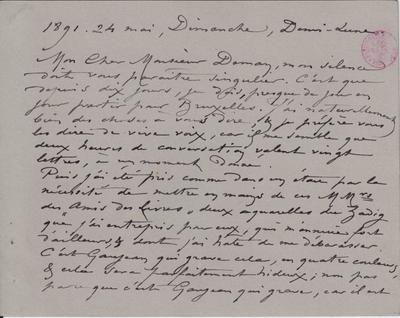 1891. 24 mai, Dimanche, Demi-Lune
Mon Cher Monsieur Deman, mon silence
doit vous paraître singulier. C'est que
depuis dix jours, je dois, presque de jour en
jour partir pour Bruxelles. J'ai naturellement
bien des choses à vous dire, & je préfère vous
les dire de vive voix, car il me semble que
deux heures de conversation valent vingt
lettres, à un moment donné.
Puis j'ai été pris comme dans un étau par la
nécessité de mettre en mains de ces MM
des Amis des Livres, deux aquarelles du Zadig
que j'ai entrepris pour eux, qui m'ennuie fort
d'ailleurs, & dont j'ai hâte de me débarasser.
C'est Gaujean qui grave cela, en quatre couleurs,
& cela sera parfaitement hideux; non pas
parce que c'est Gaujean qui grave, car il est